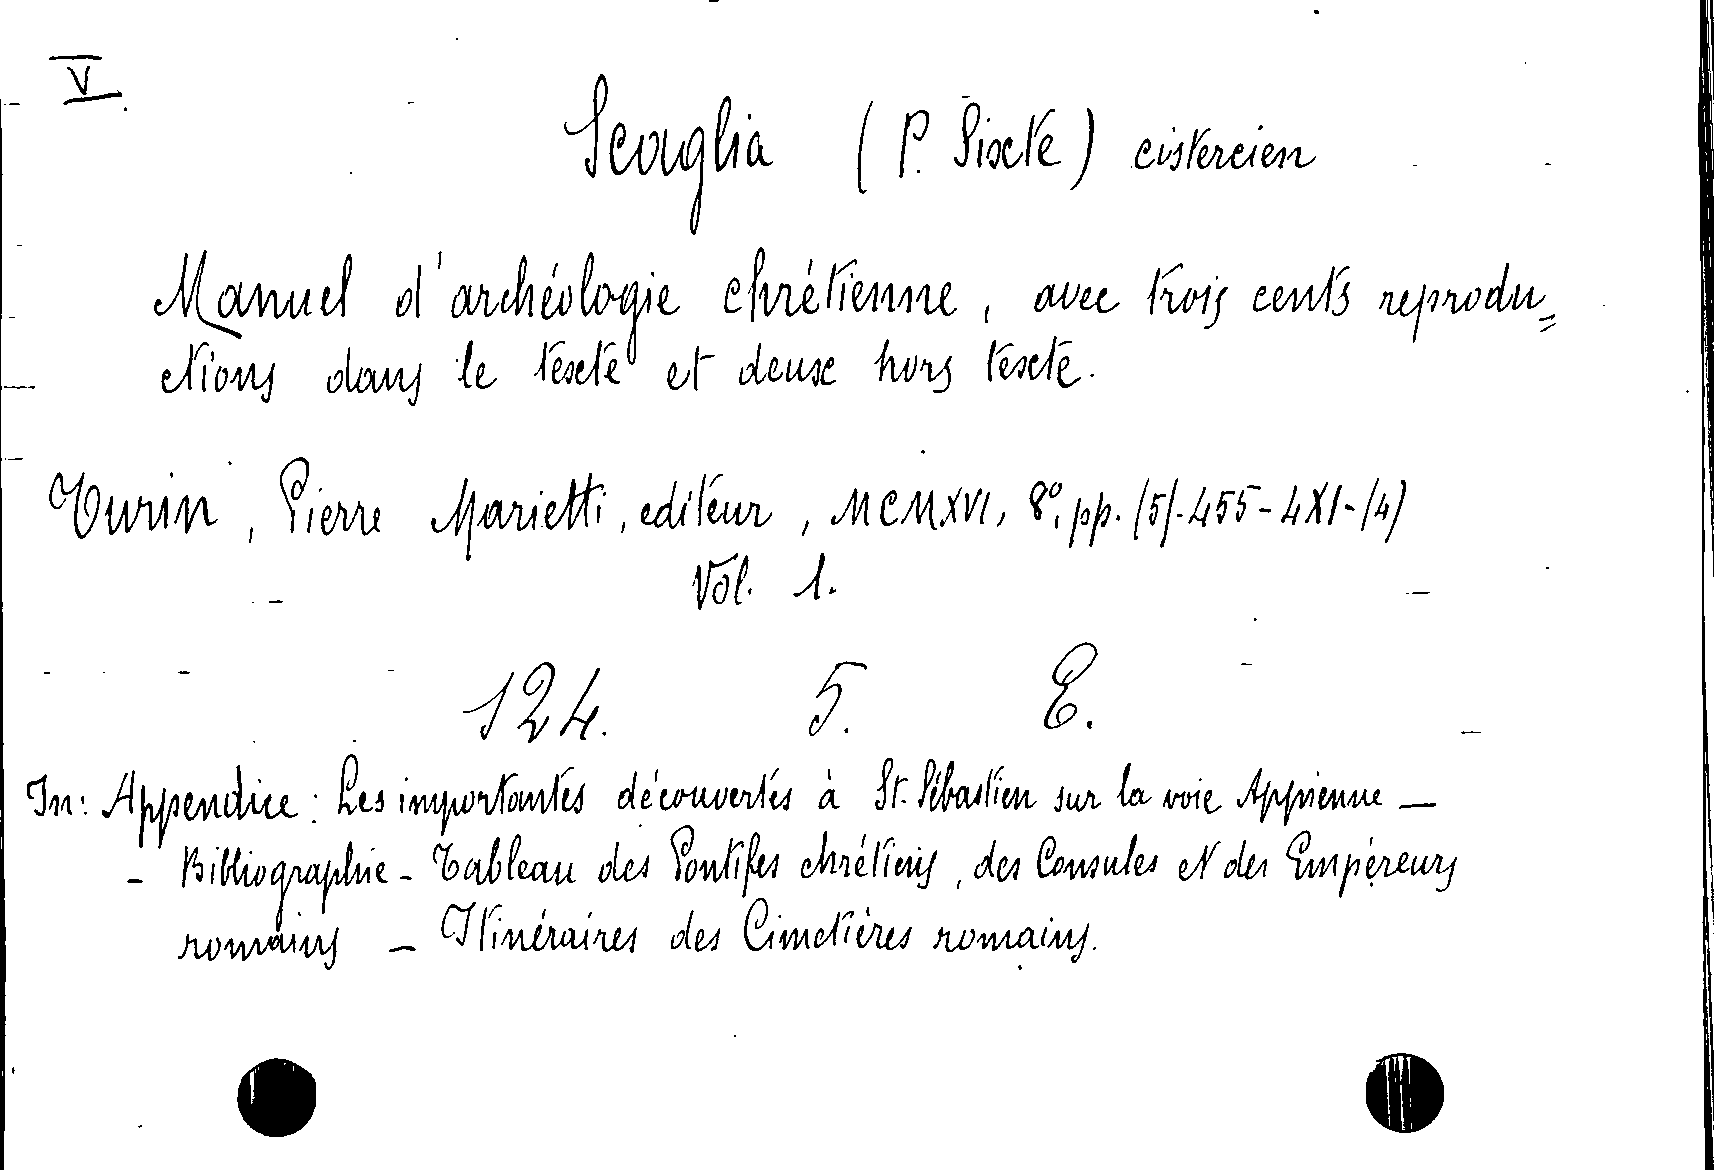 V
Scaglia (P. Sixte) cistercien
Manuel d'archéologie chrétienne, avec trois cents reprodu=
ctions dans le texte et deux hors texte.
Turin, Pierre Marietti, editeur, MCMXVI, 8°, pp. (5)-455-4XI-(4)
Vol. 1.
124. 5. E.
In: Appendice: Les importantes découvertes à St. Sébastien sur la voie Appienne —
- Bibliographie - Tableau des Pontifes chrétiens, des Consules et des Empéreurs
romains - Itinéraires des Cimetières romains.